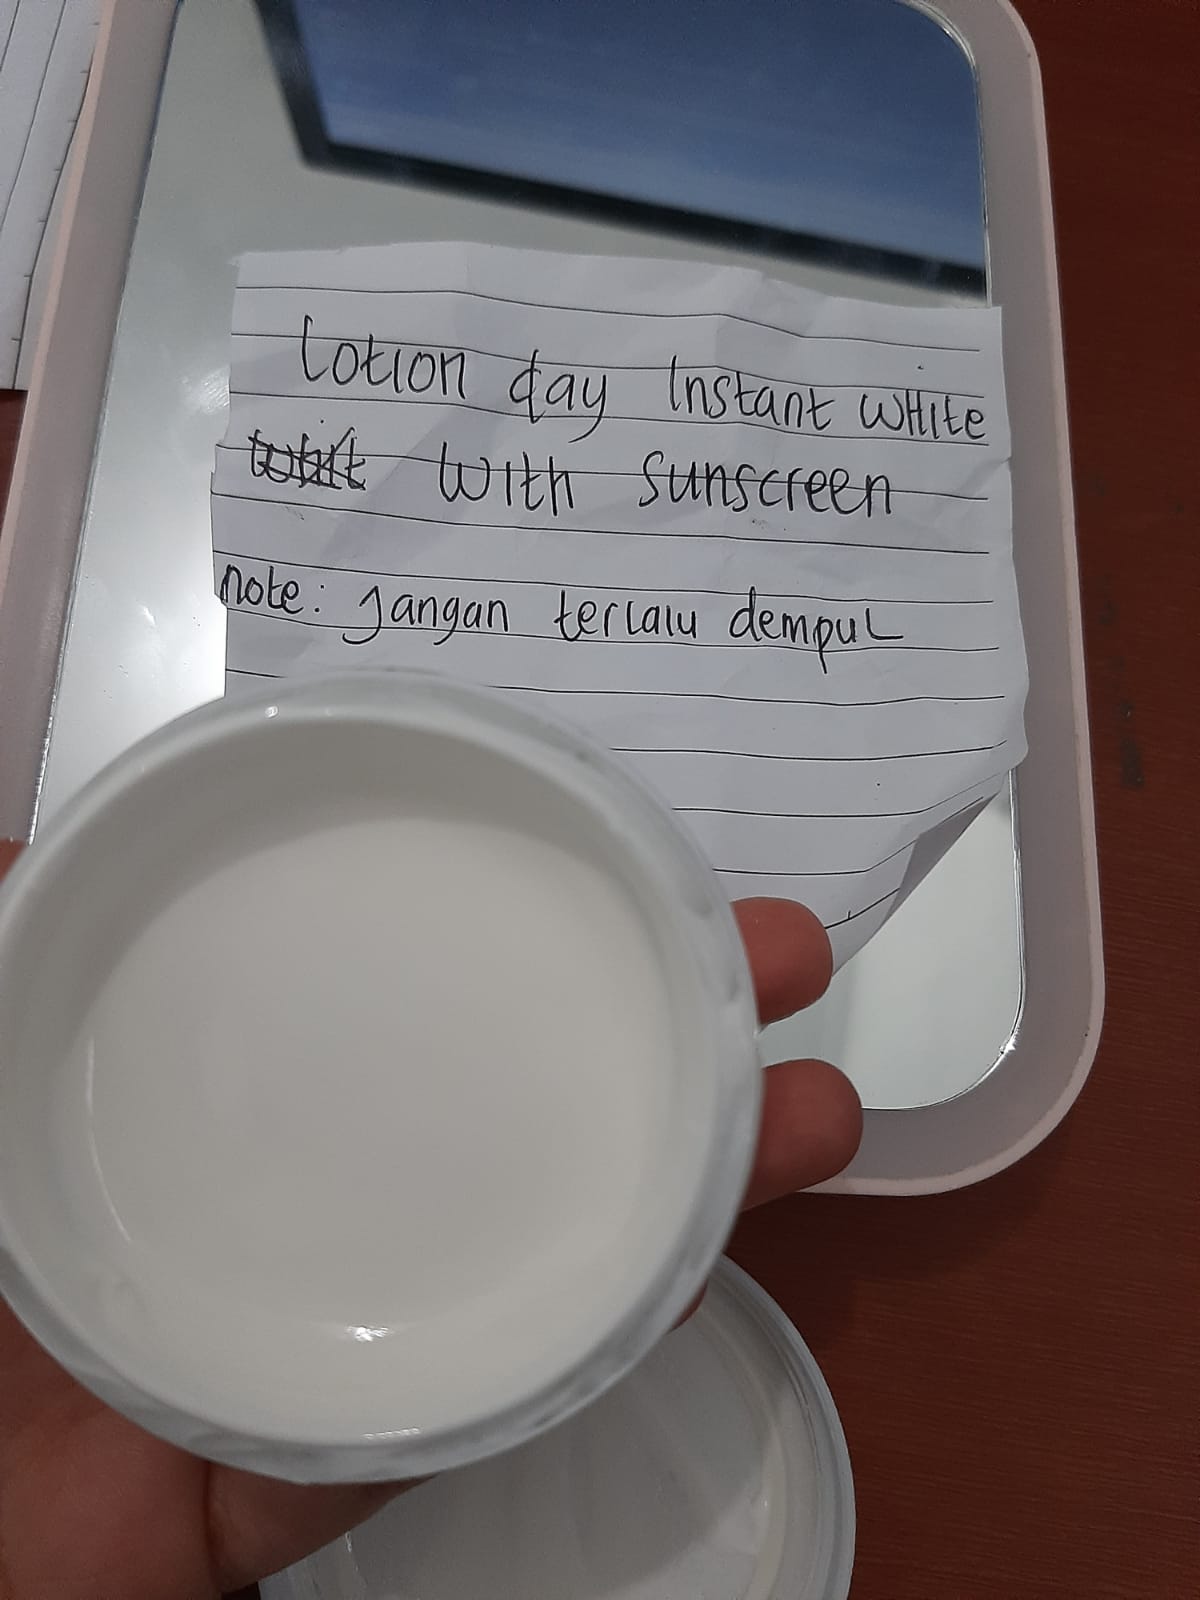 Lotion day Instant WHIte
With Sunscreen
note: Jangan terlalu dempul